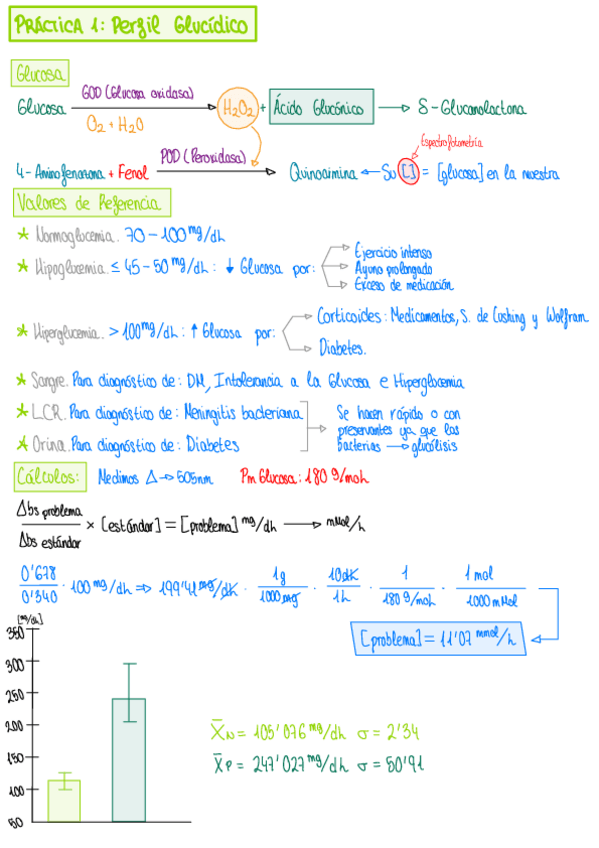 PRÁCTICA 1: Perfil Glucídico
Glucosa
Glucosa GOD (Glucosa oxidasa) O2 + H2O H2O2 + Ácido Glucónico δ-Glucanolactona
Espectrofotometría
4-Aminofenazona + Fenol POD (Peroxidasa) Quinoaimina Su [ ] = [glucosa] en la muestra
Valores de Referencia
* Normoglucemia. 70 - 100 mg/dL
* Hipoglucemia. ≤ 45 - 50 mg/dL: ↓ Glucosa por:
Ejercicio intenso
Ayuno prolongado
Exceso de medicación
* Hiperglucemia. > 100 mg/dL: ↑ Glucosa por:
Corticoides: Medicamentos, S. de Cushing y Wolfram
Diabetes.
* Sangre. Para diagnóstico de: DM, Intolerancia a la Glucosa e Hiperglucemia
* L.C.R. Para diagnóstico de: Meningitis bacteriana
* Orina. Para diagnóstico de: Diabetes
Se hacen rápido o con
preservantes ya que las
bacterias → glucólisis
Cálculos: Medimos Δ → 505nm Pm Glucosa: 180 g/moL
Δbs problema
Δbs estándar
× [estándar] = [problema] mg/dL → mMol/L
0'678 / 0'340 · 100 mg/dL ⇒ 199'41 mg/dL · 1g / 1000 mg · 10dL / 1L · 1 / 180 g/moL · 1 mol / 1000 mMol
[problema] = 11'07 mmol/L
[mg/dL]
350
300
250
200
150
100
50
X̄N = 105'076 mg/dL σ = 2'34
X̄P = 247'027 mg/dL σ = 50'91